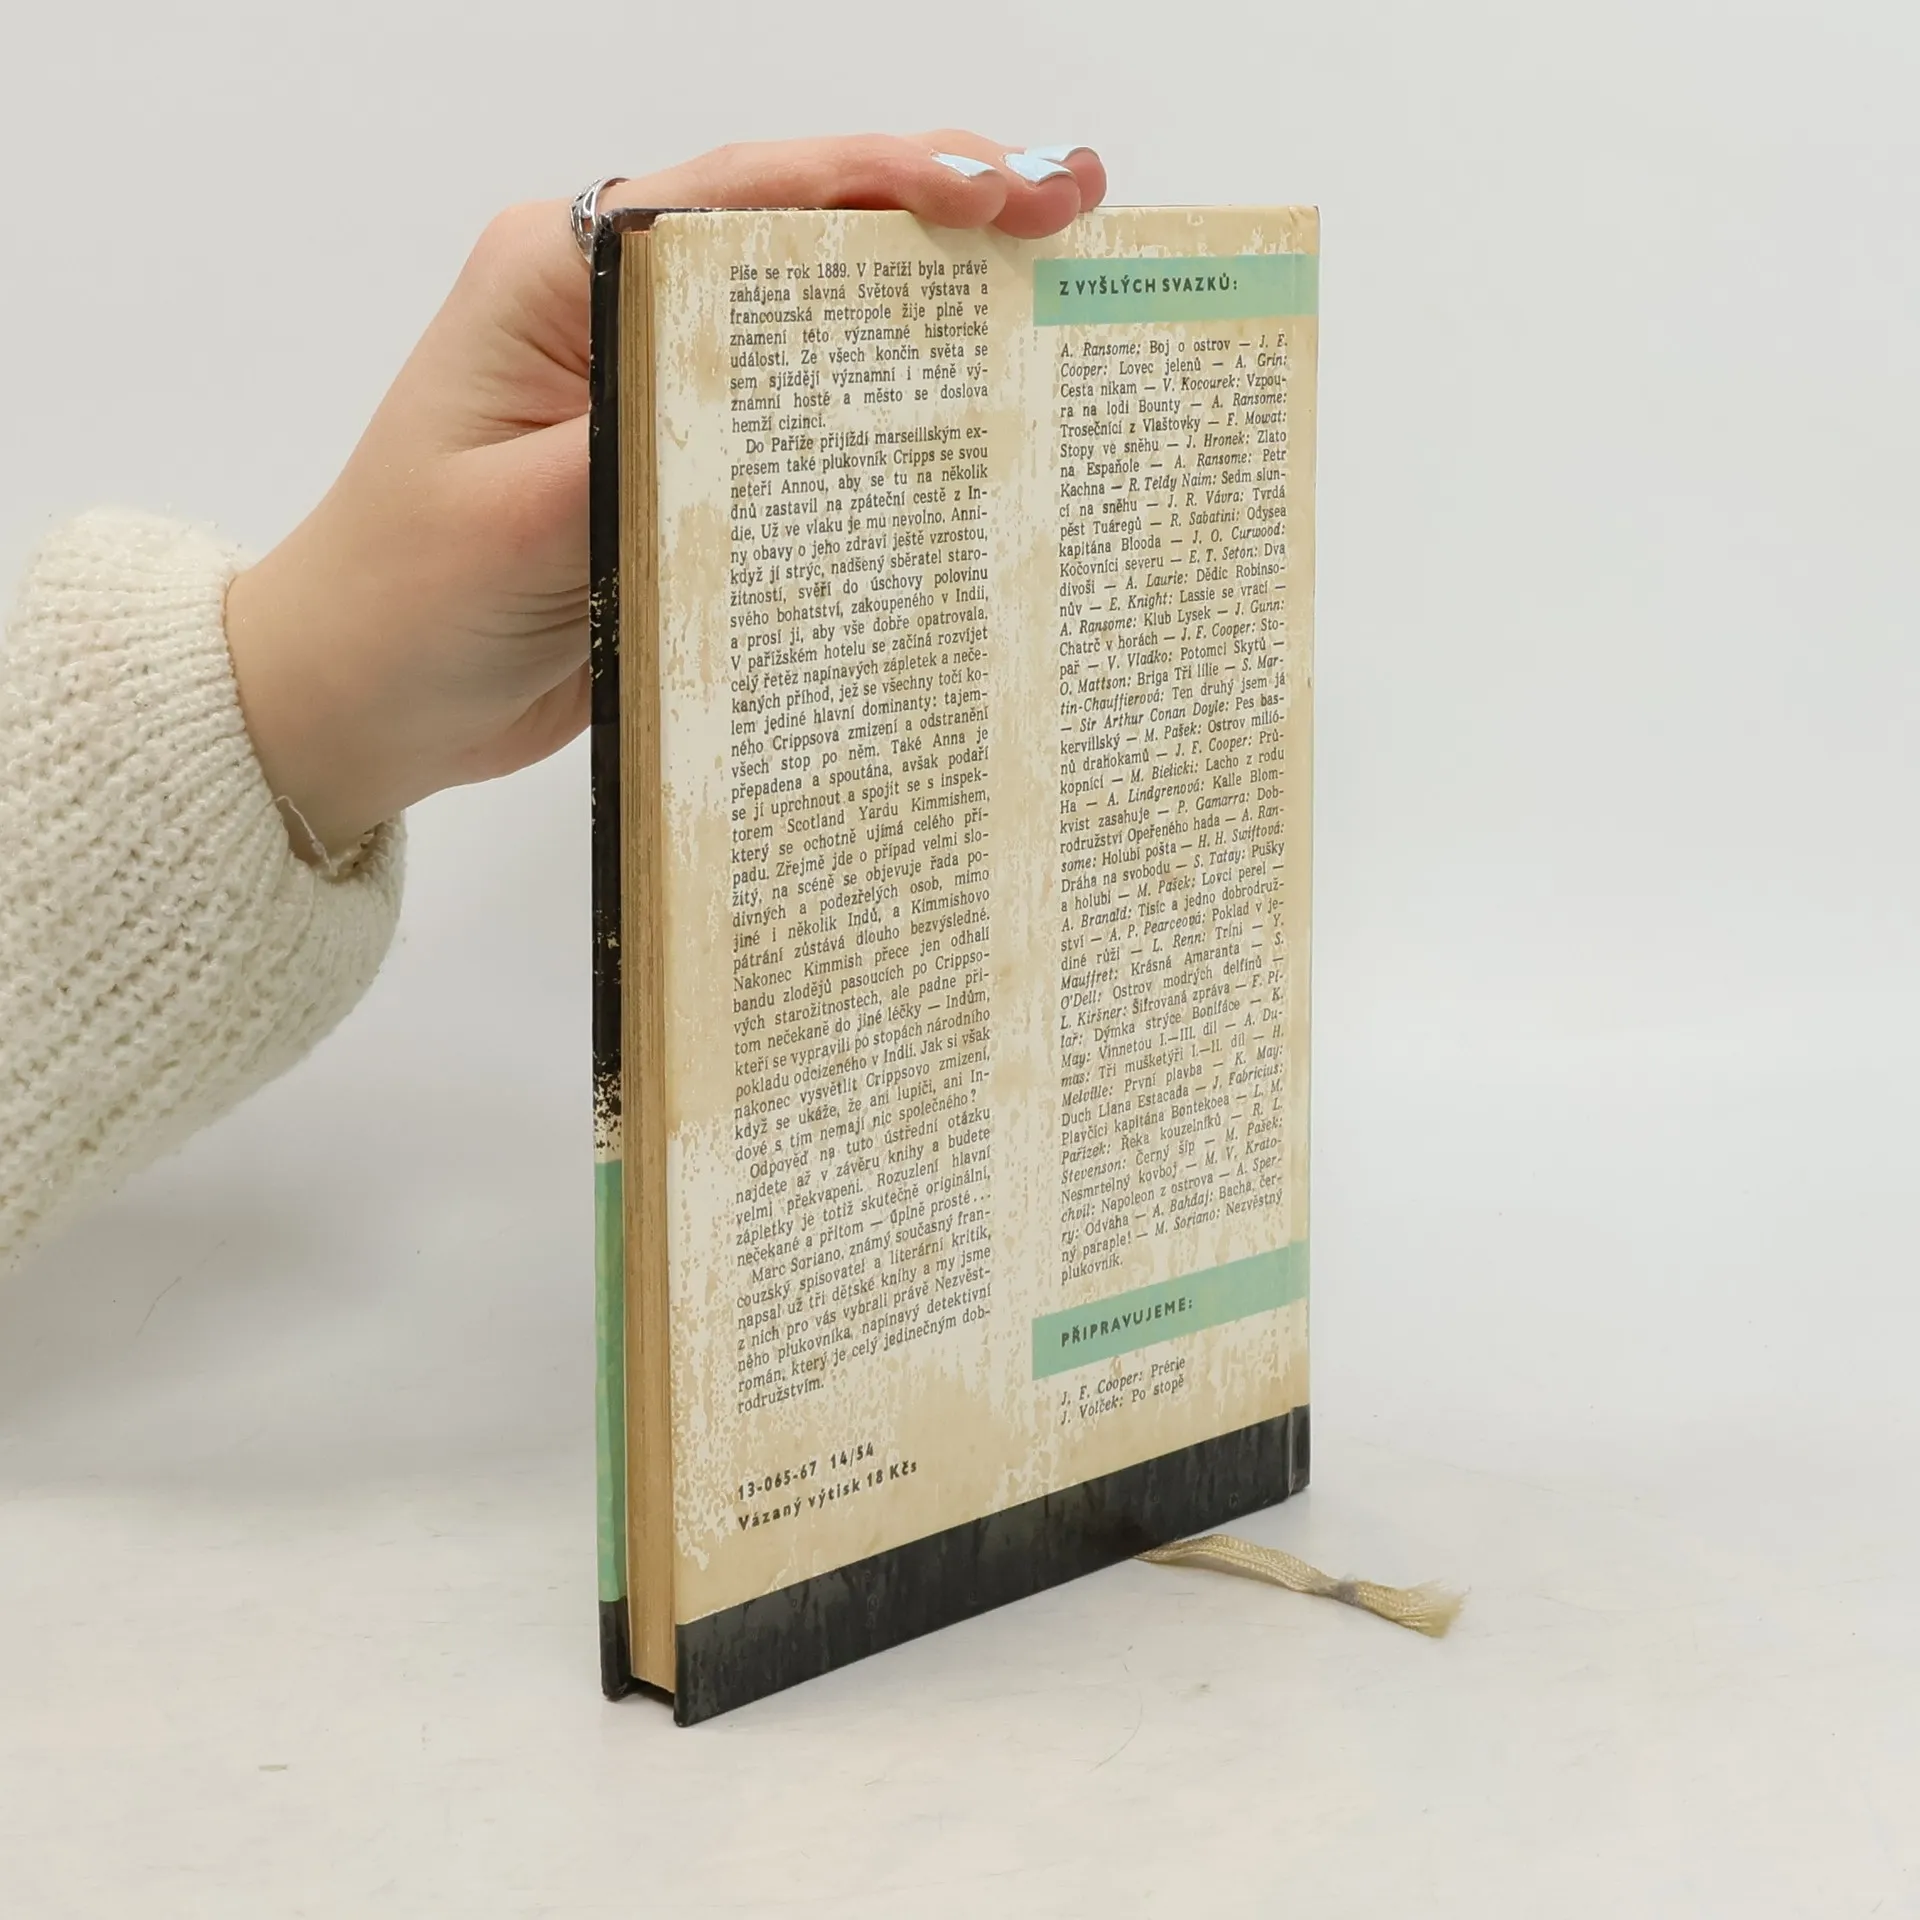 Píše se rok 1889. V Paříži byla právě
zahájena slavná Světová výstava a
francouzská metropole žije plně ve
znamení této významné historické
události. Ze všech končin světa se
sem sjíždějí významní i méně vý-
znamní hosté a město se doslova
hemží cizinci.
Do Paříže přijíždí marseillským ex-
presem také plukovník Cripps se svou
neteří Annou, aby se tu na několik
dnů zastavil na zpáteční cestě z In-
die. Už ve vlaku je mu nevolno. Anni-
ny obavy o jeho zdraví ještě vzrostou,
když jí strýc, nadšený sběratel staro-
žitností, svěří do úschovy polovinu
svého bohatství, zakoupeného v Indii,
a prosí ji, aby vše dobře opatrovala.
V pařížském hotelu se začíná rozvíjet
celý řetěz napínavých zápletek a neče-
kaných příhod, jež se všechny točí ko-
lem jediné hlavní dominanty: tajem-
ného Crippsova zmizení a odstranění
všech stop po něm. Také Anna je
přepadena a spoutána, avšak podaří
se jí uprchnout a spojit se s inspek-
torem Scotland Yardu Kimmishem,
který se ochotně ujímá celého pří-
padu. Zřejmě jde o případ velmi slo-
žitý, na scéně se objevuje řada po-
divných a podezřelých osob, mimo
jiné i několik Indů, a Kimmishovo
pátrání zůstává dlouho bezvýsledné.
Nakonec Kimmish přece jen odhalí
bandu zlodějů pasoucích po Crippso-
vých starožitnostech, ale padne při-
tom nečekaně do jiné léčky — Indům,
kteří se vypravili po stopách národního
pokladu odcizeného v Indii. Jak si však
nakonec vysvětlit Crippsovo zmizení,
když se ukáže, že ani lupiči, ani In-
dové s tím nemají nic společného?
Odpověď na tuto ústřední otázku
najdete až v závěru knihy a budete
velmi překvapeni. Rozuzlení hlavní
zápletky je totiž skutečně originální,
nečekané a přitom — úplně prosté...
Marc Soriano, známý současný fran-
couzský spisovatel a literární kritik,
napsal už tři dětské knihy a my jsme
z nich pro vás vybrali právě Nezvěst-
ného plukovníka, napínavý detektivní
román, který je celý jedinečným dob-
rodružstvím.
13-065-67 14/54
Vázaný výtisk 18 Kčs
Z VYŠLÝCH SVAZKŮ:
A. Ransome: Boj o ostrov — J. F.
Cooper: Lovec jelenů — A. Grin:
Cesta nikam — V. Kocourek: Vzpou-
ra na lodi Bounty — A. Ransome:
Trosečníci z Vlaštovky — F. Mowat:
Stopy ve sněhu — J. Hronek: Zlato
na Españole — A. Ransome: Petr
Kachna — R. Teldy Naim: Sedm slun-
cí na sněhu — J. R. Vávra: Tvrdá
pěst Tuáregů — R. Sabatini: Odysea
kapitána Blooda — J. O. Curwood:
Kočovníci severu — E. T. Seton: Dva
divoši — A. Laurie: Dědic Robinso-
nův — E. Knight: Lassie se vrací —
A. Ransome: Klub Lysek — J. Gunn:
Chatrč v horách — J. F. Cooper: Sto-
pař — V. Vladko: Potomci Skytů —
O. Mattson: Briga Tři lilie — S. Mar-
tin-Chauffierová: Ten druhý jsem já
— Sir Arthur Conan Doyle: Pes bas-
kervillský — M. Pašek: Ostrov milió-
nů drahokamů — J. F. Cooper: Prů-
kopníci — M. Bielicki: Lacho z rodu
Ha — A. Lindgrenová: Kalle Blom-
kvist zasahuje — P. Gamarra: Dob-
rodružství Opeřeného hada — A. Ran-
some: Holubí pošta — H. H. Swiftová:
Dráha na svobodu — S. Tatay: Pušky
a holubi — M. Pašek: Lovci perel —
A. Branald: Tisíc a jedno dobrodruž-
ství — A. P. Pearceová: Poklad v je-
diné růži — L. Renn: Trini — Y.
Mauffret: Krásná Amaranta — S.
O'Dell: Ostrov modrých delfínů —
L. Kiršner: Šifrovaná zpráva — F. Pi-
lař: Dýmka strýce Bonifáce — K.
May: Vinnetou I.—III. díl — A. Du-
mas: Tři mušketýři I.—II. díl — H.
Melville: První plavba — K. May:
Duch Llana Estacada — J. Fabricius:
Plavčíci kapitána Bontekoea — L. M.
Pařízek: Řeka kouzelníků — R. L.
Stevenson: Černý šíp — M. Pašek:
Nesmrtelný kovboj — M. V. Krato-
chvíl: Napoleon z ostrova — A. Sper-
ry: Odvaha — A. Bahdaj: Bacha, čer-
ný paraple! — M. Soriano: Nezvěstný
plukovník.
PŘIPRAVUJEME:
J. F. Cooper: Prérie
J. Volček: Po stopě